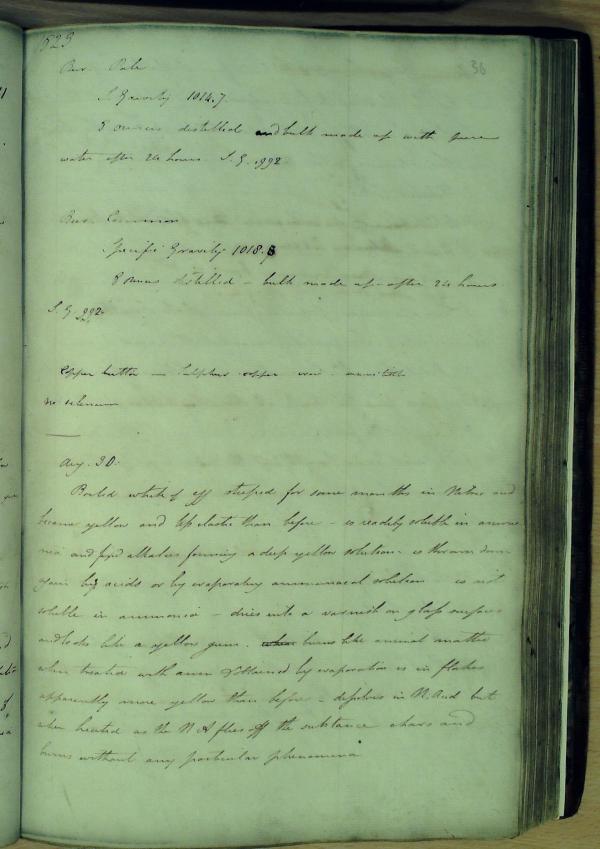 1823
36
Pale
S. Gravity 1014.7.
8 ounces distilled and bulk made up with pure
water after 24 hours. S.G. .992
Common
Specific Gravity 1018.8
8 ounces distilled - bulk made up - after 24 hours
S.G .992.
Copper button - Sulphur copper iron
no selenium
Aug. 30.
Boiled white of egg steeped for some months in Nitric acid
became yellow and less elastic than before - is readily soluble in ammo
nia and fixed alkalies forming a deep yellow solution - is thrown down
again by acids or by evaporating ammoniacal solution is not
soluble in ammonia - dries into a varnish on glass surfaces
and looks like a yellow gum. burns like animal matter
when treated with amm obtained by evaporation is in flakes
apparently more yellow than before - dissolves in N. Acid but
when heated as the N A flies off the substance chars and
burns without any particular phenomena